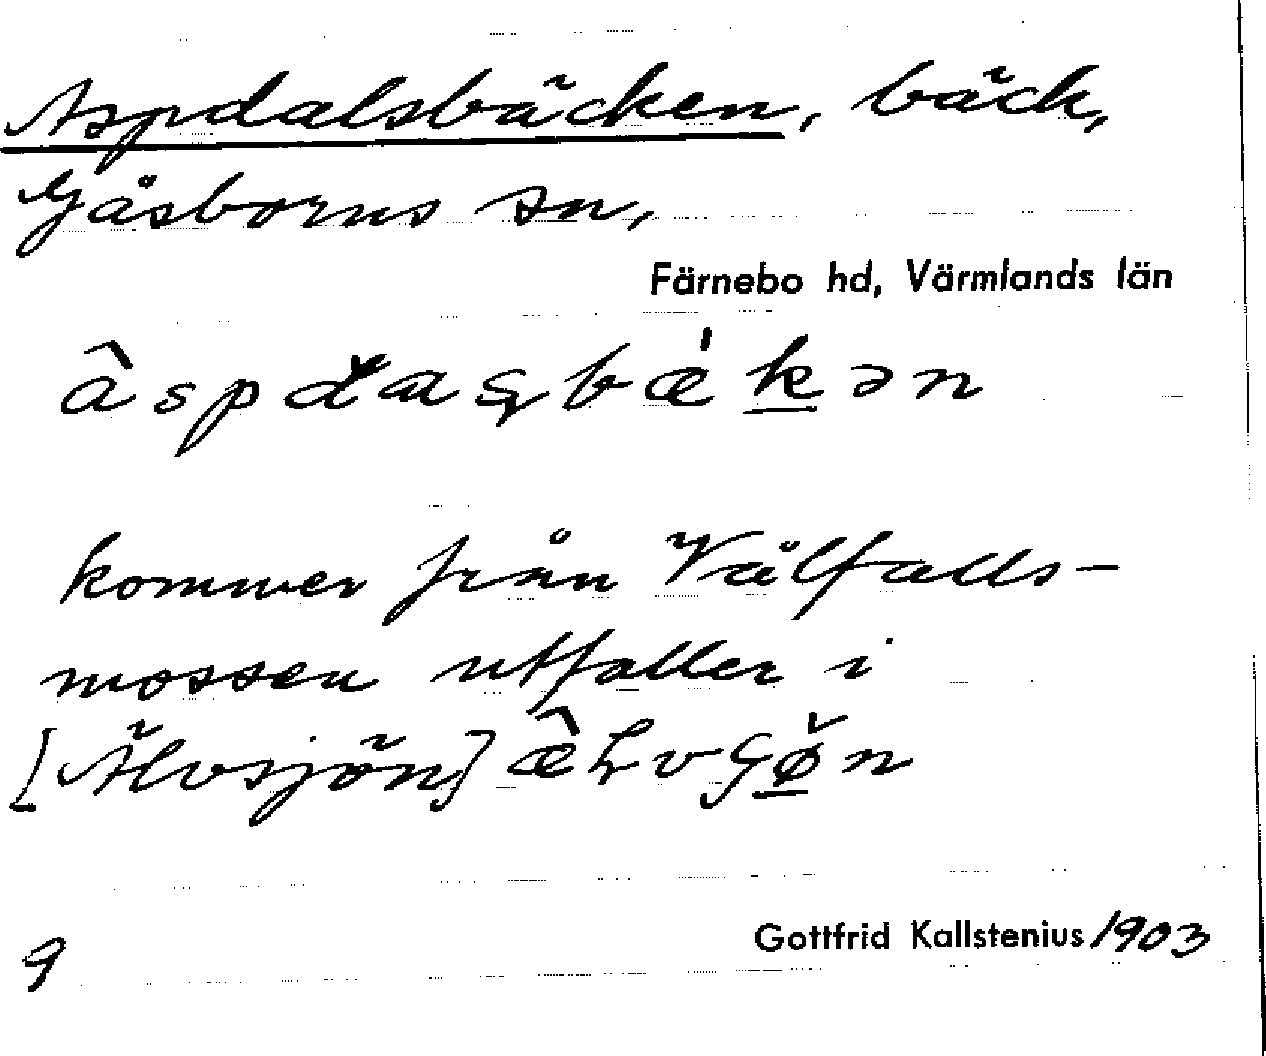 Aspdalsbäcken, bäck,
Gåsborns sn,
Färnebo hd, Värmlands län
kommer från Välfalls-
mossen utfaller i
[Älvsjön]
9
Gottfrid Kallstenius 1903